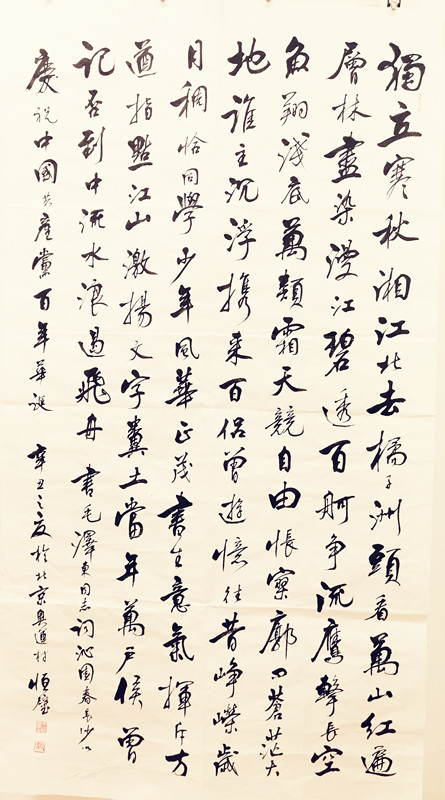 獨立寒秋湘江北去橘子洲頭看萬山紅遍
層林盡染漫江碧透百舸争流鷹擊長空
魚翔淺底萬類霜天競自由悵寥廓問蒼茫大
地誰主沉浮携來百侶曾遊憶往昔崢嶸歲
月稠恰同學少年風華正茂書生意氣揮斥方
遒指點江山激揚文字糞土當年萬戶侯曾
記否到中流水浪遏飛舟 書毛澤東同志詞沁園春長沙以
慶祝中國共產黨百年華誕 辛丑之夏於北京奥運村恒